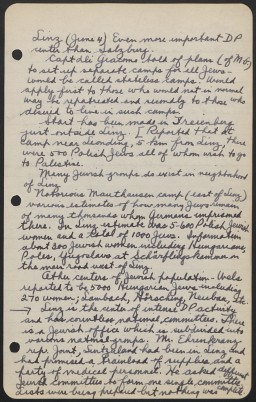 Linz (June 4) Even more important DP
center than Salzburg.
Capt di Giacomo told of plans (of MG)
to set up separate camps for all Jews -
would be called stateless camps. Would
apply first to those who would not in normal
way be repatriated and secondly to those who
desired to live in such camps.
Start has been made in
just outside Linz. [Reported that at
camp near Leonding, 5 km from Linz, there
were 500 Polish Jews all of whom wish to go
to Palestine.
Many Jewish groups do exist in neighborhood
of Linz
Notorious Mauthausen camp (east of Linz)
various estimates of how many Jews remain
of many thousands whom Germans imprisoned
there. In Linz estimate was 5-600 Polish Jewish
women and a total of 1000 Jews. Information
about 300 Jewish women including Hungarians,
Poles, Yugoslavs at
the main road west of Linz.
Other centers of Jewish population - Wels
reported to be 5000 Hungarian Jews including
270 women; Lambach, Hörsching, Neubau, Etc.
→ Linz is the center of intense DP activity
and has countless national committees. There
is a Jewish office which is subdivided into
various national groups. Mr. Ehrenkranz
rep. Joint, Switzerland had been in Linz and
has promised a trainload of supplies and a
party of medical personnel. He asked different
Jewish committees to form one single committee.
Lists were being prepared but nothing was